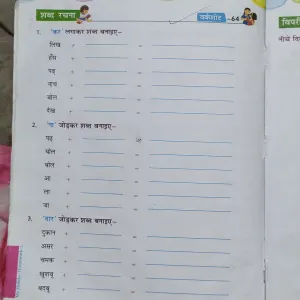 शब्द रचना
वर्कशीट -64
1. 'कर' लगाकर शब्द बनाइए-
लिख + =
हँस + =
पढ़ + =
नाच + =
बोल + =
देख + =
2. जोड़कर शब्द बनाइए-
पढ़ + =
खेल + =
बोल + =
आ + =
ला + =
जा + =
3. 'दार' जोड़कर शब्द बनाइए-
दुकान + =
असर + =
चमक + =
खुशबू + =
बदबू + =
विपरी
नीचे दि